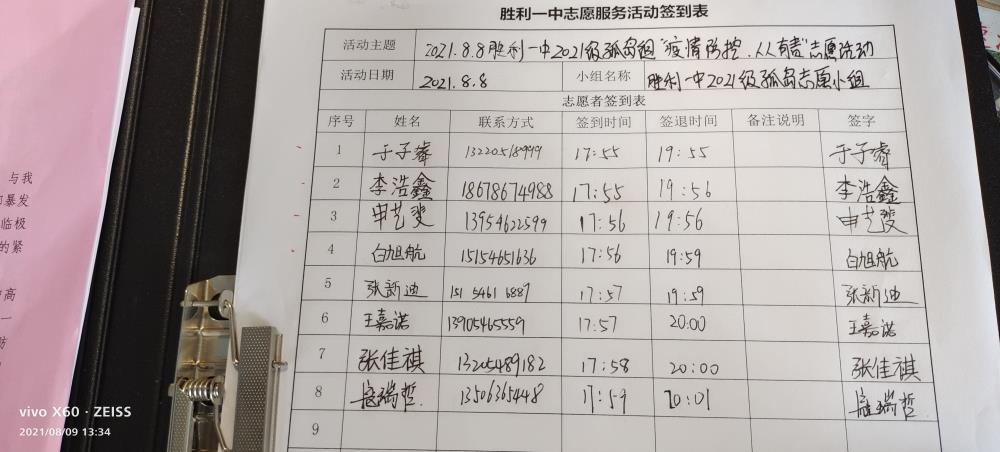 胜利一中志愿服务活动签到表
活动主题 2021.8.8胜利一中2021级孤岛组"疫情防控.人人有责"志愿活动
活动日期 2021.8.8 小组名称 胜利一中2021级孤岛志愿小组
志愿者签到表
序号 姓名 联系方式 签到时间 签退时间 备注说明 签字
1 于子睿 13220518999 17:55 19:55 于子睿
2 李浩鑫 18678674988 17:55 19:56 李浩鑫
3 申艺斐 13954622599 17:56 19:56 申艺斐
4 白旭航 15154651636 17:56 19:59 白旭航
5 张新迪 151 5461 6887 17:57 19:59 张新迪
6 王嘉诺 13905465559 17:57 20:00 王嘉诺
7 张佳祺 13205489182 17:58 20:00 张佳祺
8 瑞哲 13506365448 17:59 20:01 瑞哲
9
与我
暴发
临极
的紧
高
一
vivo X60 · ZEISS
2021/08/09 13:34